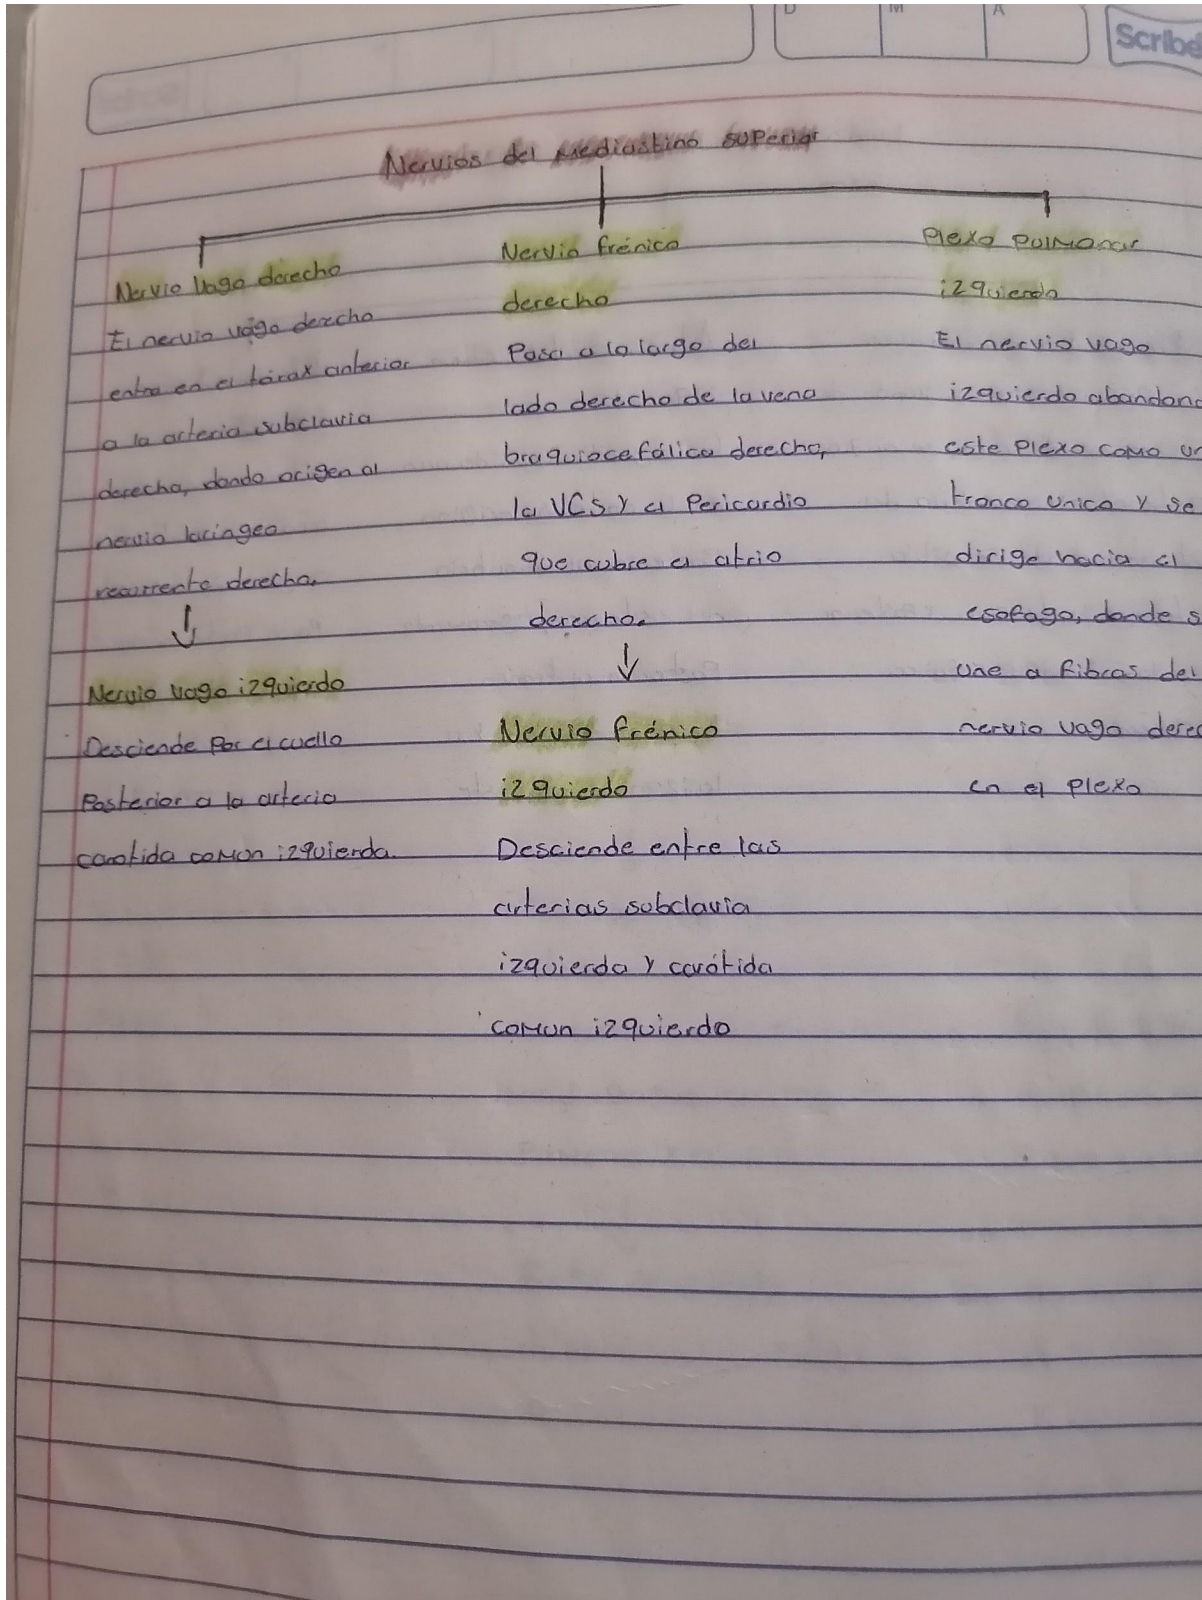 D M A
Scribe
Nervios del Mediastino superior
Nervio Vago derecho
El nervio vago derecho
entra en el tórax anterior
a la arteria subclavia
derecha, dando origen al
nervio laringeo
recurrente derecho.
Nervio vago izquierdo
Desciende por el cuello
Posterior a la arteria
carotida comun izquierda.
Nervio frénico
derecho
Pasa a lo largo del
lado derecho de la vena
braquiocefálica derecha,
la VCS y el Pericardio
que cubre el atrio
derecho.
Nervio frénico
izquierdo
Desciende entre las
arterias subclavia
izquierda y carótida
comun izquierdo
Plexo Pulmonar
izquierdo
El nervio vago
izquierdo abandona
este Plexo como un
tronco unico y se
dirige hacia el
esofago, donde s
une a fibras del
nervio vago derec
en el Plexo